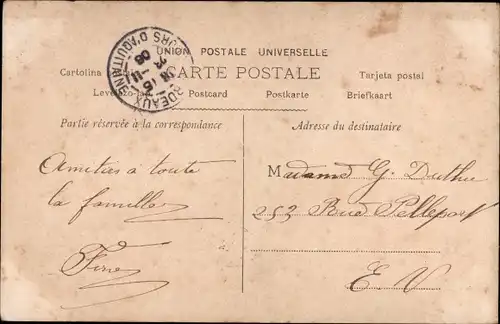 UNION POSTALE UNIVERSELLE
CARTE POSTALE
Cartolina Tarjeta postal
Postcard Postkarte Briefkaart
BORDEAUX COURS D'AQUITAINE
Partie réservée à la correspondance
Adresse du destinataire
Amitiés à toute
la famille
Madame G. Duthu
253 Rue Pelleport
E. V